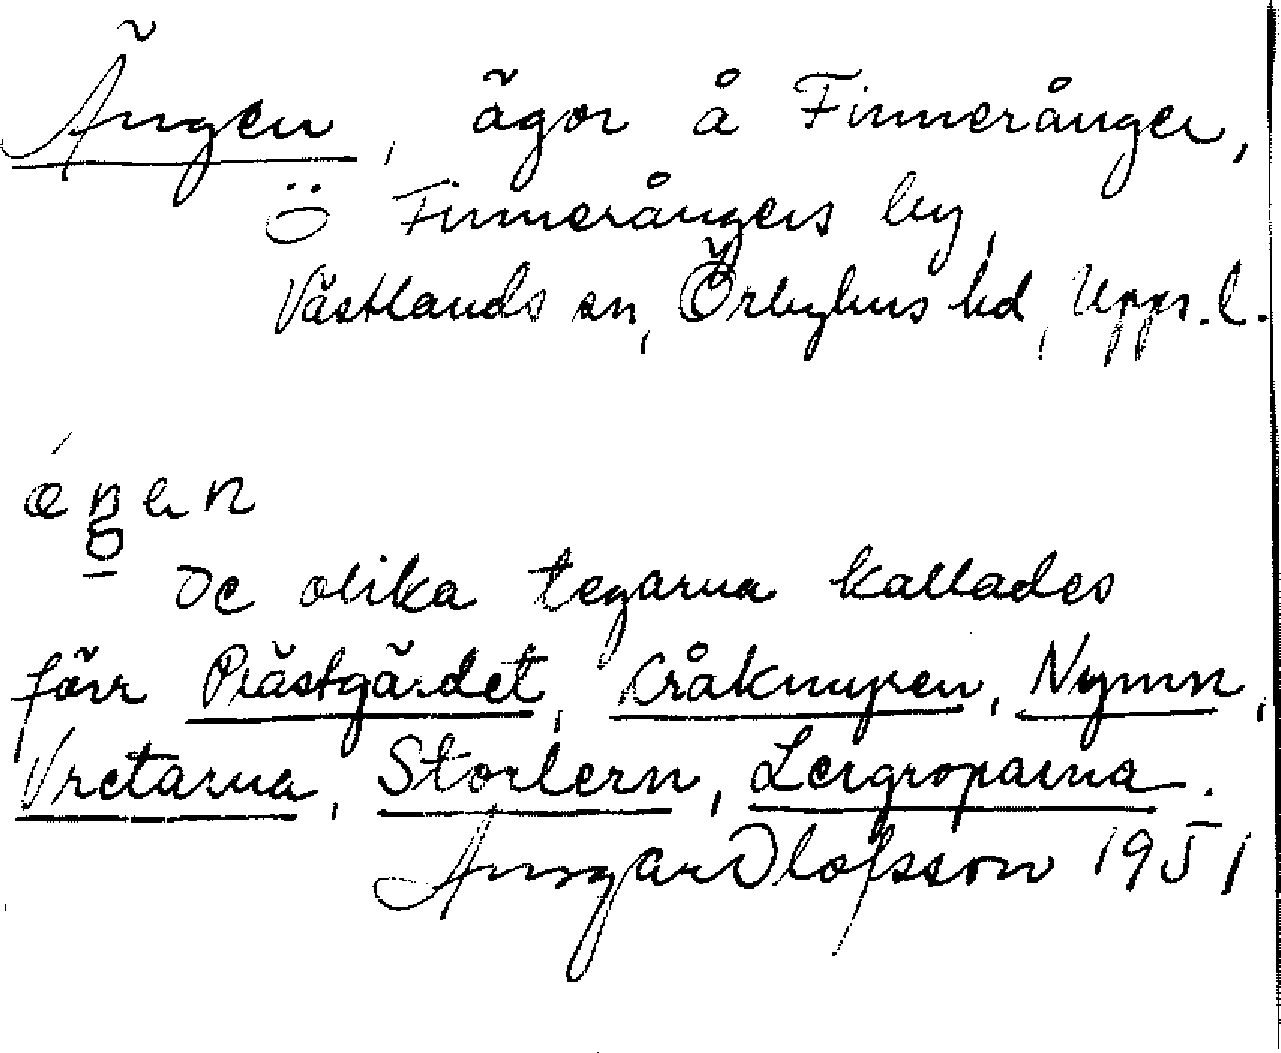 Ängen, ägor å Finnerånger,
Ö Finnerångers by,
Västlands sn, Örbyhus hd, Upps. l.
De olika tegarna kallades
förr Prästgärdet, Kråknupen, Nymn,
Vretarna, Storlern, Lergroparna.
Ansgar Olofsson 1951